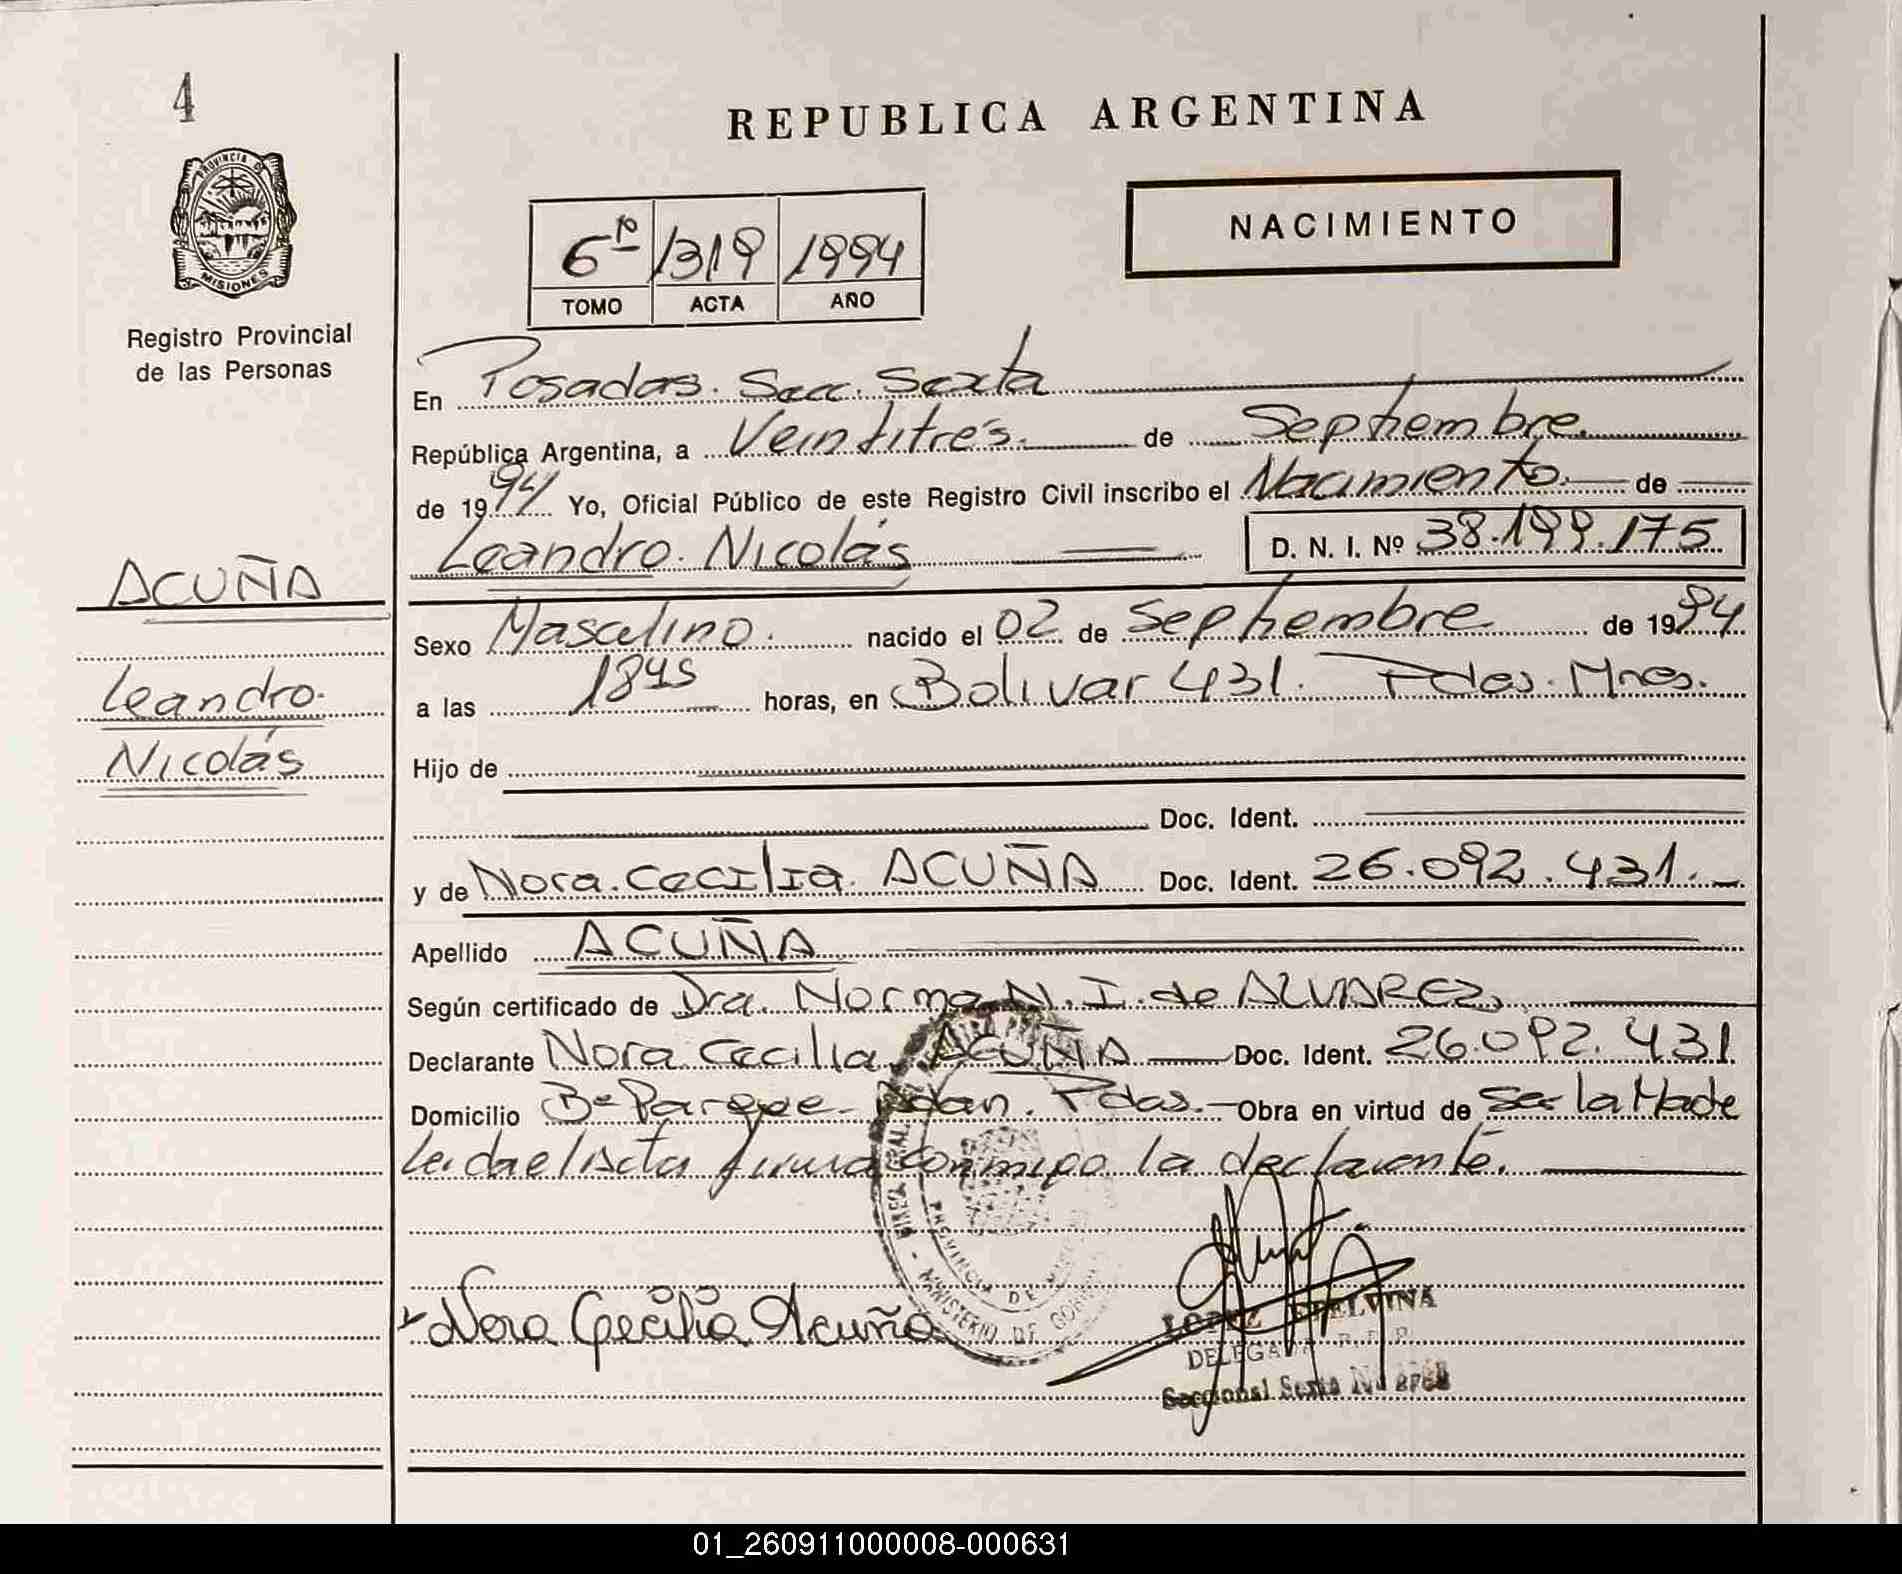 4
REPUBLICA ARGENTINA
NACIMIENTO
PROVINCIA DE
MISIONES
Registro Provincial
de las Personas
6to 1319 1994
TOMO ACTA AÑO
En Posadas. Secc. Sexta
República Argentina, a Veintitrés. de Septiembre.
de 1994 Yo, Oficial Público de este Registro Civil inscribo el Nacimiento. de
Leandro. Nicolás D. N. I. Nº 38.199.175
ACUÑA
Leandro.
Nicolás
Sexo Masculino. nacido el 02 de Septiembre de 1994
a las 1845 horas, en Bolivar 431. Pdas. Mnes.
Hijo de
Doc. Ident.
y de Nora. Cecilia. ACUÑA Doc. Ident. 26.092.431.
Apellido ACUÑA
Según certificado de Dra. Norma N. I. de ALVAREZ,
Declarante Nora Cecilia, ACUÑA Doc. Ident. 26.092.431
Domicilio Bº Parque Adan. Pdas. Obra en virtud de Ser la Madre
Leida el Acta firma conmigo la declarante.
PROVINCIA DE
MINISTERIO DE GOB
Nora Cecilia Acuña
LOPEZ ETELVINA
DELEGADA R. P. P.
Seccional Sexta Nº
01_260911000008-000631